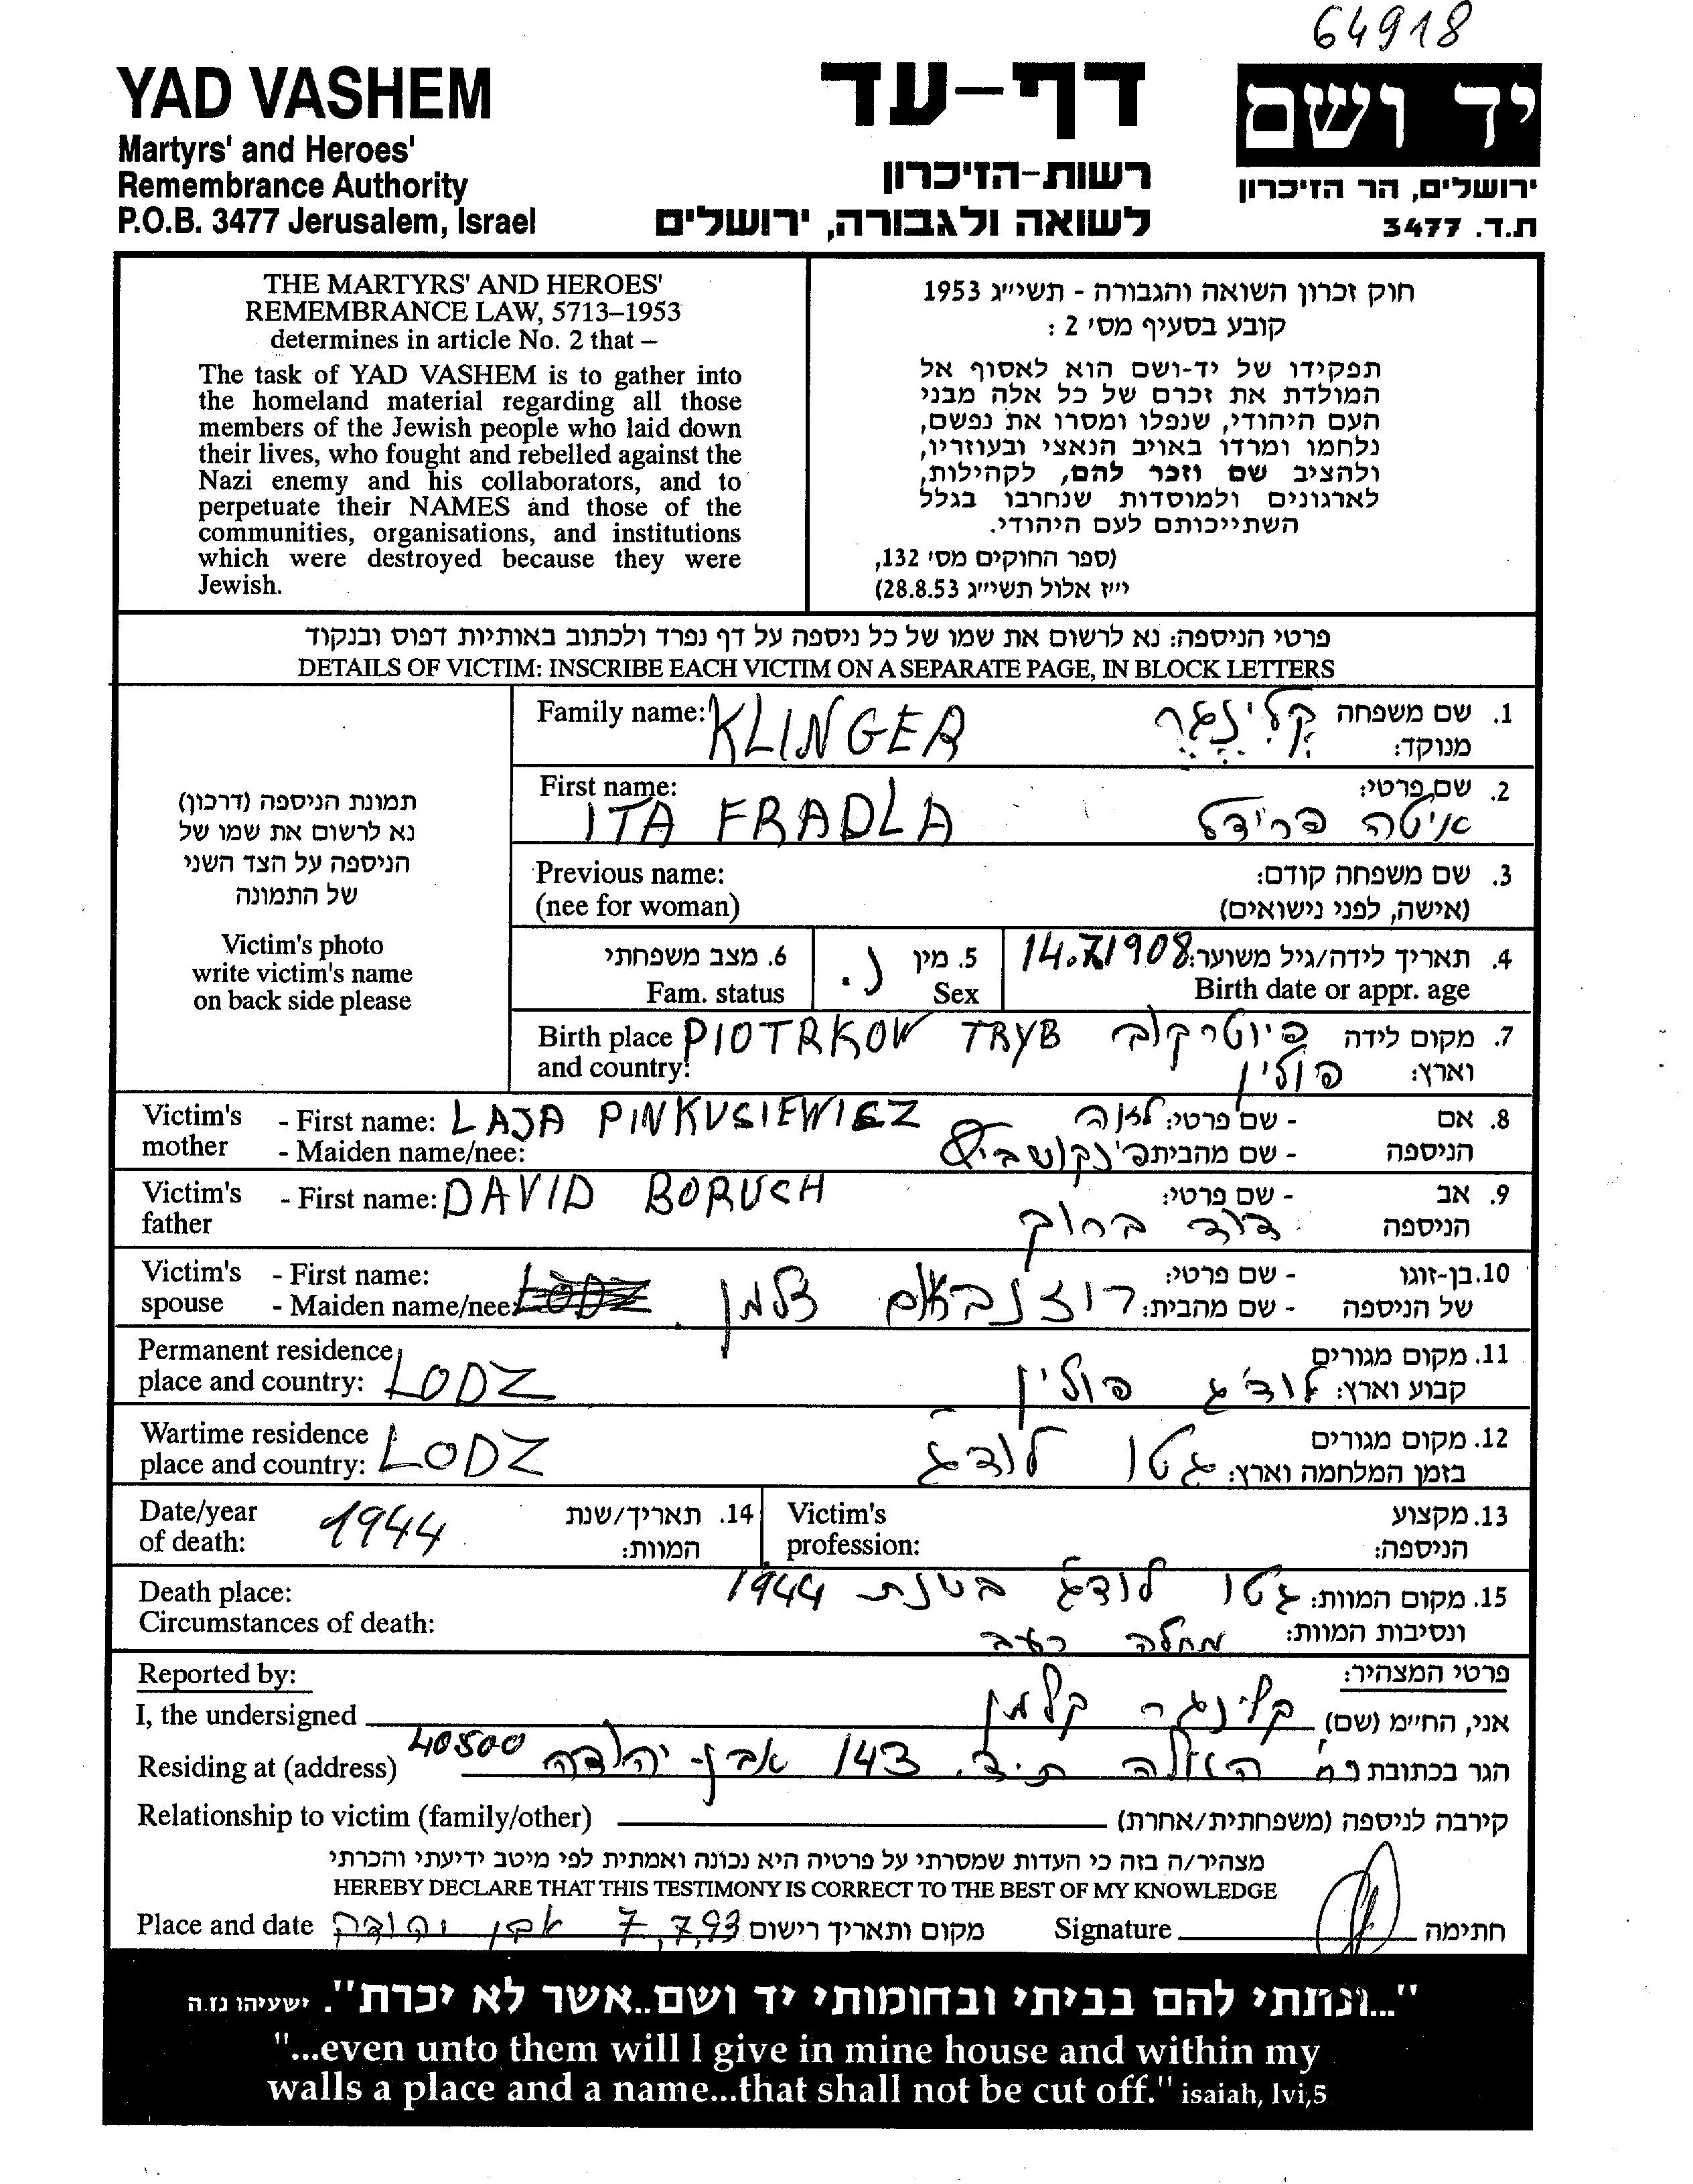 64918
YAD VASHEM
Martyrs' and Heroes'
Remembrance Authority
P.O.B. 3477 Jerusalem, Israel
דף-עד
רשות-הזיכרון
לשואה ולגבורה, ירושלים
יד ושם
ירושלים, הר הזיכרון
ת.ד. 3477
THE MARTYRS' AND HEROES'
REMEMBRANCE LAW, 5713–1953
determines in article No. 2 that –
The task of YAD VASHEM is to gather into
the homeland material regarding all those
members of the Jewish people who laid down
their lives, who fought and rebelled against the
Nazi enemy and his collaborators, and to
perpetuate their NAMES and those of the
communities, organisations, and institutions
which were destroyed because they were
Jewish.
חוק זכרון השואה והגבורה - תשי״ג 1953
קובע בסעיף מס׳ 2 :
תפקידו של יד-ושם הוא לאסוף אל
המולדת את זכרם של כל אלה מבני
העם היהודי, שנפלו ומסרו את נפשם,
נלחמו ומרדו באויב הנאצי ובעוזריו,
ולהציב שם וזכר להם, לקהילות,
לארגונים ולמוסדות שנחרבו בגלל
השתייכותם לעם היהודי.
(ספר החוקים מס׳ 132,
י״ז אלול תשי״ג 28.8.53)
פרטי הניספה: נא לרשום את שמו של כל ניספה על דף נפרד ולכתוב באותיות דפוס ובנקוד
DETAILS OF VICTIM: INSCRIBE EACH VICTIM ON A SEPARATE PAGE, IN BLOCK LETTERS
תמונת הניספה (דרכון)
נא לרשום את שמו של
הניספה על הצד השני
של התמונה
Victim's photo
write victim's name
on back side please
Family name: KLINGER
1. שם משפחה מנוקד: קלינגר
First name: ITA FRADLA
2. שם פרטי: איטה פרידל
Previous name:
(nee for woman)
3. שם משפחה קודם:
(אישה, לפני נישואים)
4. תאריך לידה/גיל משוער: 14.7.1908
Birth date or appr. age
5. מין נ.
Sex
6. מצב משפחתי
Fam. status
Birth place and country: PIOTRKOW TRYB
7. מקום לידה וארץ: פיוטרקוב פולין
Victim's mother - First name: LAJA PINKUSIEWICZ
- Maiden name/nee:
8. אם הניספה - שם פרטי: לאה
- שם מהבית:
Victim's father - First name: DAVID BORUCH
9. אב הניספה - שם פרטי: דוד ברוך
Victim's spouse - First name:
- Maiden name/nee:
10. בן-זוגו של הניספה - שם פרטי:
- שם מהבית: רוזנבאום זלמן
Permanent residence
place and country: LODZ
11. מקום מגורים
קבוע וארץ: לודג פולין
Wartime residence
place and country: LODZ
12. מקום מגורים
בזמן המלחמה וארץ: גטו לודג
Date/year
of death: 1944
14. תאריך/שנת
המוות:
Victim's
profession:
13. מקצוע
הניספה:
Death place:
Circumstances of death:
15. מקום המוות: גטו לודג בשנת 1944
ונסיבות המוות: מחלה רעב
Reported by:
פרטי המצהיר:
I, the undersigned
אני, החי״מ (שם) קלינגר קלמן
Residing at (address)
הגר בכתובת רח האלה ת.ד. 143 אבן-יהודה 40500
Relationship to victim (family/other)
קירבה לניספה (משפחתית/אחרת)
מצהיר/ה בזה כי העדות שמסרתי על פרטיה היא נכונה ואמתית לפי מיטב ידיעתי והכרתי
HEREBY DECLARE THAT THIS TESTIMONY IS CORRECT TO THE BEST OF MY KNOWLEDGE
Place and date
מקום ותאריך רישום 7,7,93 אבן יהודה
Signature
חתימה
"...ונתתי להם בביתי ובחומותי יד ושם..אשר לא יכרת". ישעיהו נז.ה
"...even unto them will I give in mine house and within my
walls a place and a name...that shall not be cut off." isaiah, lvi,5